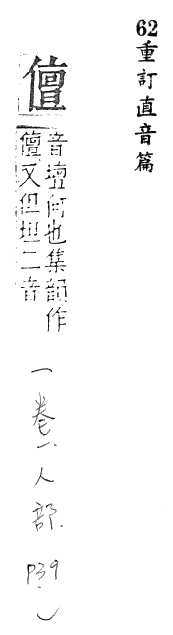 62重訂直音篇
儃
音壇何也集韻作
儃又但坦二音
(卷一.人部.P39.)